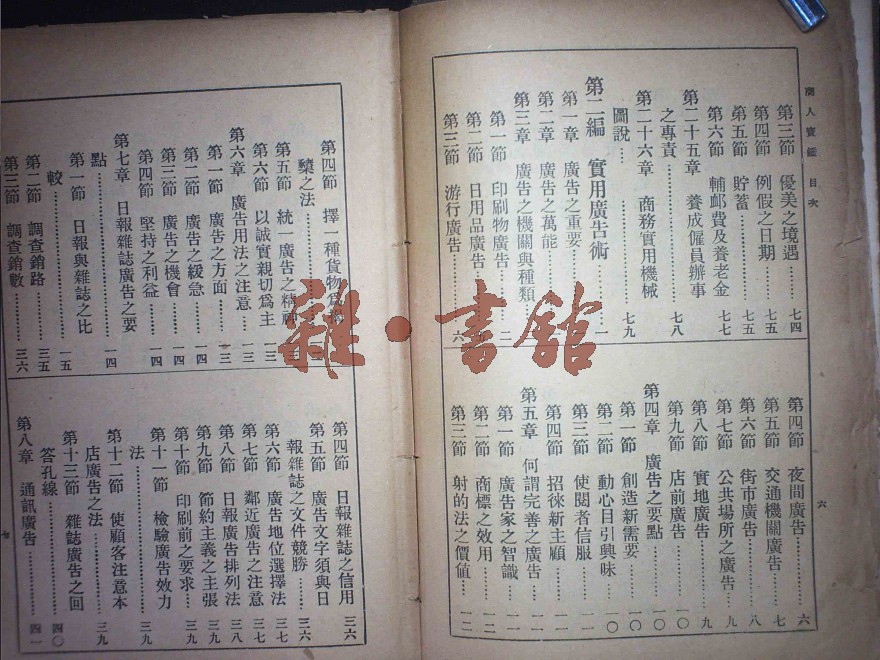 商人寶鑑 目次
六
第三節 優美之境遇……七四
第四節 例假之日期……七五
第五節 貯蓄……七五
第六節 輔郵費及養老金 七七
第二十五章 養成僱員辦事
之專責……七八
第二十六章 商務實用機械
圖說……七九
第二編 實用廣告術……一
第一章 廣告之重要……
第二章 廣告之萬能……
第三章 廣告之機關與種類
第一節 印刷物廣告……二
第二節 日用品廣告……
第三節 游行廣告……六
第四節 夜間廣告……六
第五節 交通機關廣告……七
第六節 街市廣告……八
第七節 公共場所之廣告 九
第八節 實地廣告……九
第九節 店前廣告……一〇
第四章 廣告之要點……一〇
第一節 創造新需要……一〇
第二節 動心目引興味……一〇
第三節 使閱者信服……一一
第四節 招徠新主顧……一一
第五章 何謂完善之廣告……一一
第一節 廣告家之智識……一一
第二節 商標之效用……一二
第三節 射的法之價値……一二
第四節 擇一種貨物爲
之法……
第五節 統一廣告之精神
第六節 以誠實親切爲主 一三
第六章 廣告用法之注意……一三
第一節 廣告之方面……一三
第二節 廣告之緩急……一四
第三節 廣告之機會……一四
第四節 堅持之利益……一四
第七章 日報雜誌廣告之要
點……一四
第一節 日報與雜誌之比
較……一五
第二節 調查銷路……三五
第三節 調查銷數……三六
第四節 日報雜誌之信用 三六
第五節 廣告文字須與日
報雜誌之文件競勝……三六
第六節 廣告地位選擇法 三七
第七節 鄰近廣告之注意 三七
第八節 日報廣告排列法 三八
第九節 節約主義之主張 三九
第十節 印刷前之要求……三九
第十一節 檢驗廣告效力
法……三九
第十二節 使顧客注意本
店廣告之法……三九
第十三節 雜誌廣告之回
答孔線……四〇
第八章 通訊廣告……四一
七
雜·書館